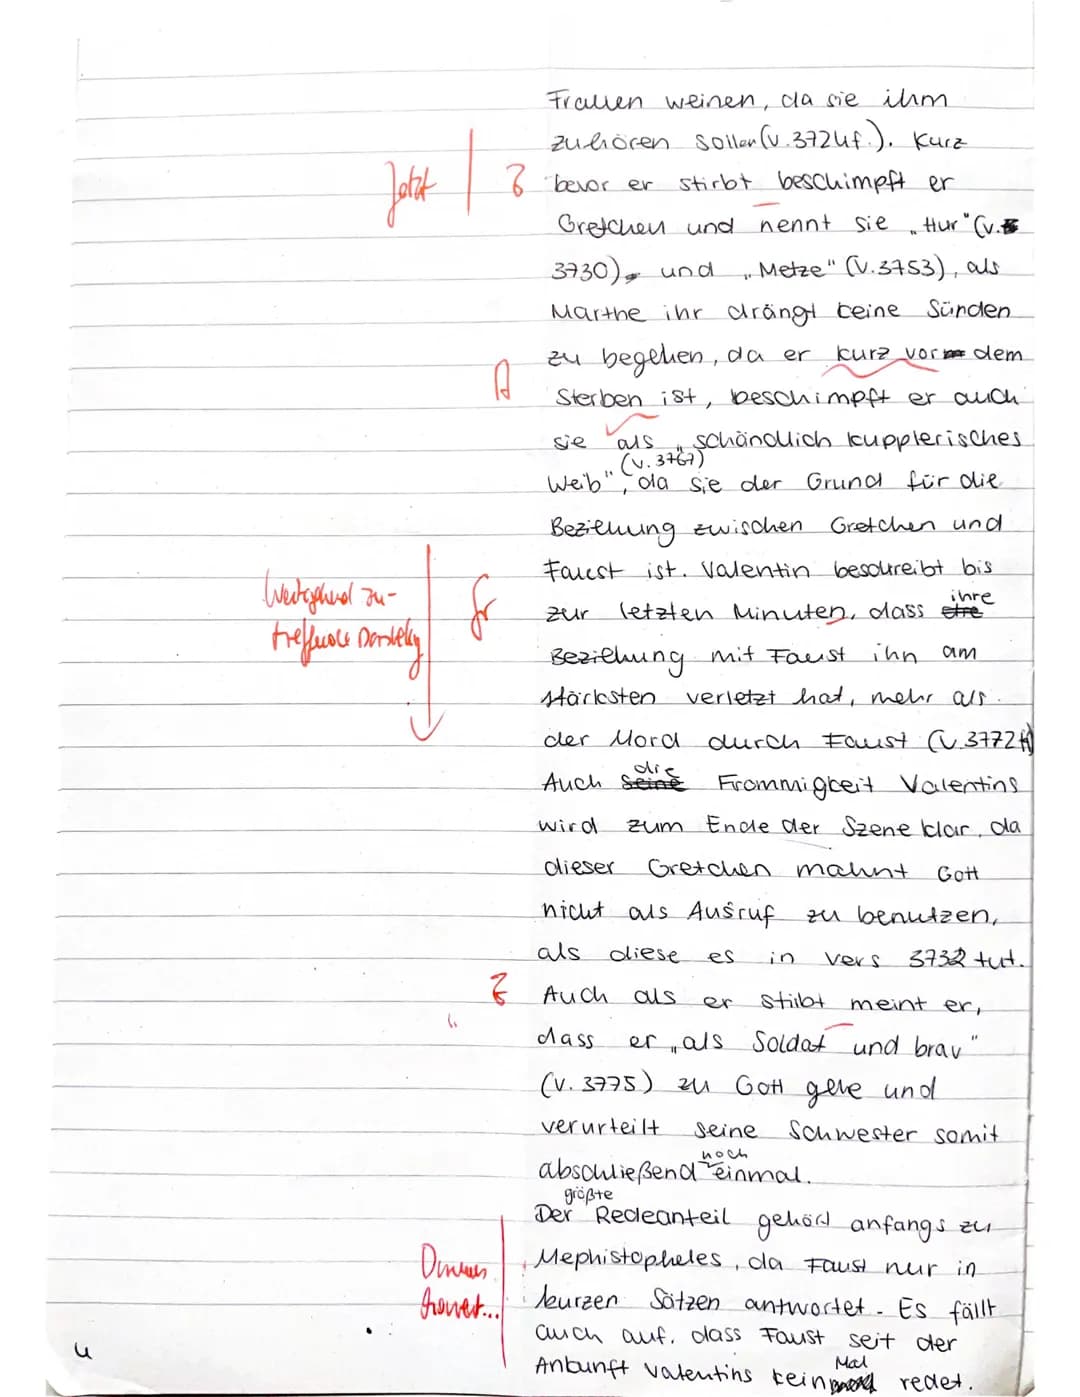 Frauen weinen, da sie ihm
zuhören sollen (v. 3724f.). Kurz
Jetzt Z bevor er stirbt beschimpft er
Gretchen und nennt sie „Hur" (v.
3730) und „Metze" (v. 3753), als
Marthe ihr drängt keine Sünden
zu begehen, da er kurz vor dem
A Sterben ist, beschimpft er auch
sie als „schändlich kupplerisches
(v. 3767)
Weib", da sie der Grund für die
Beziehung zwischen Gretchen und
Faust ist. Valentin beschreibt bis
ihre
Weitgehend zu- Gr zur letzten Minuten, dass
treffende Beziehung mit Faust ihn am
stärksten verletzt hat, mehr als
der Mord durch Faust (v. 3772ff)
die
Auch seine Frommigkeit Valentins
wird zum Ende der Szene klar, da
dieser Gretchen mahnt Gott
nicht als Ausruf zu benutzen,
als diese es in vers 3732 tut.
Z Auch als er stibt meint er,
dass er „als Soldat und brav"
(v. 3775) zu Gott gehe und
verurteilt seine Schwester somit
noch
abschließend einmal.
größte
Der Redeanteil gehört anfangs zu
Mephistopheles, da Faust nur in
kurzen Sätzen antwortet. Es fällt
auch auf, dass Faust seit der
Mal
4 Ankunft Valentins kein redet.